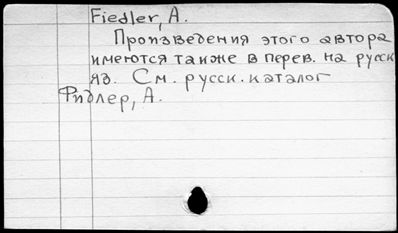 Fiedler, A.
Произведения этого автора
имеются также в перев. на русск
яз. См. русск. каталог
Фидлер, А.